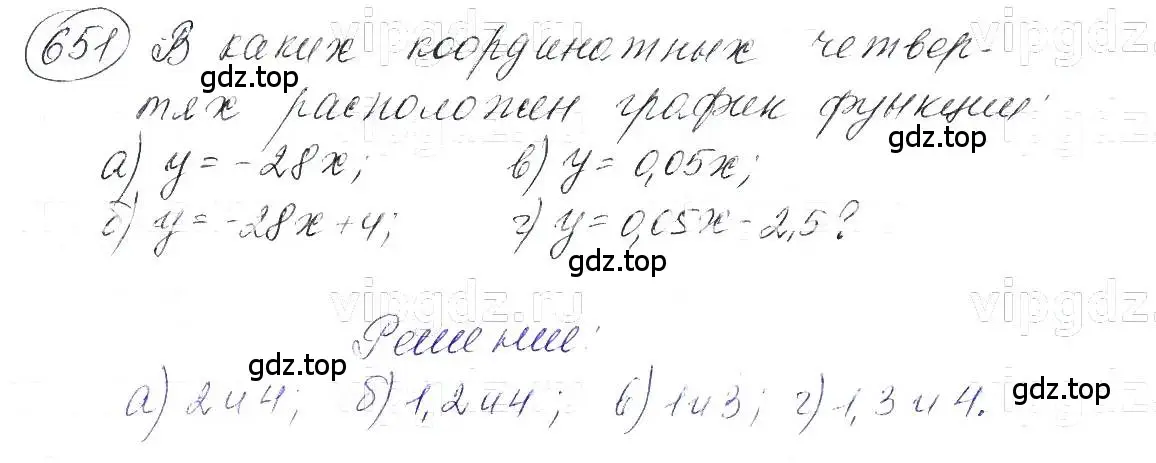 vipgdz.ru vipgdz.
651 В каких координатных четвер-
gdz.top
тях расположен график функции:
gdz.top
а) y = -28x; в) y = 0,05x;
б) y = -28x + 4; г) y = 0,05x - 2,5?
gdz.top
vipgdz.ru vipgdz.
Решение:
gdz.top
а) 2 и 4; б) 1, 2 и 4; в) 1 и 3; г) 1, 3 и 4.
gdz.top